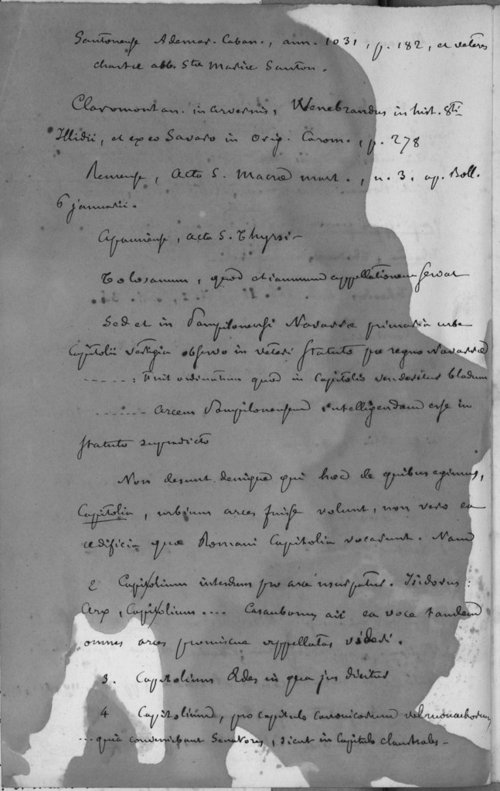 Santonense Ademar. Caban., ann. 1031, p. 182, et veteris
chartæ abb. Stæ Mariæ Santon.
Claromontan. in Arvernis, Wenebrandus in hist. Sti
Illidii, et ex eo Savaro in Orig. Carom., p. 278
Remense, Acta S. Macræ mart., n. 3. ap. Boll.
6 januarii.
Apamiense, acta S. Thyrsi -
Tolosanum, quod etiamnum appellationem servat
Sed et in Pampilonensi Navarræ primaria urbe
Capitolii vestigia observo in veteri statuto pro regno Navarræ
------: Fuit ordinatum quod in Capitolio venderetur bladum
------ arcem Pampilonensem intelligendam esse in
statuto supradicto
Non desunt denique qui hæc de quibus egimus,
Capitolia, urbium arces fuisse volunt, non vero ea
ædificia quæ Romani Capitolia vocarunt. Nam
2 Capitolium interdum pro arce usurpatur. Isidorus:
Arx, Capitolium.... Casaubonus ait ea voce tandem
omnes arces promiscue appellatas videri.
3. Capitolium Ædes in qua jus dicitur
4 Capitolium, pro capitulo canonicorum vel monachorum,
... quia conveniebant Senatores, sicut in Capitulo claustrales -